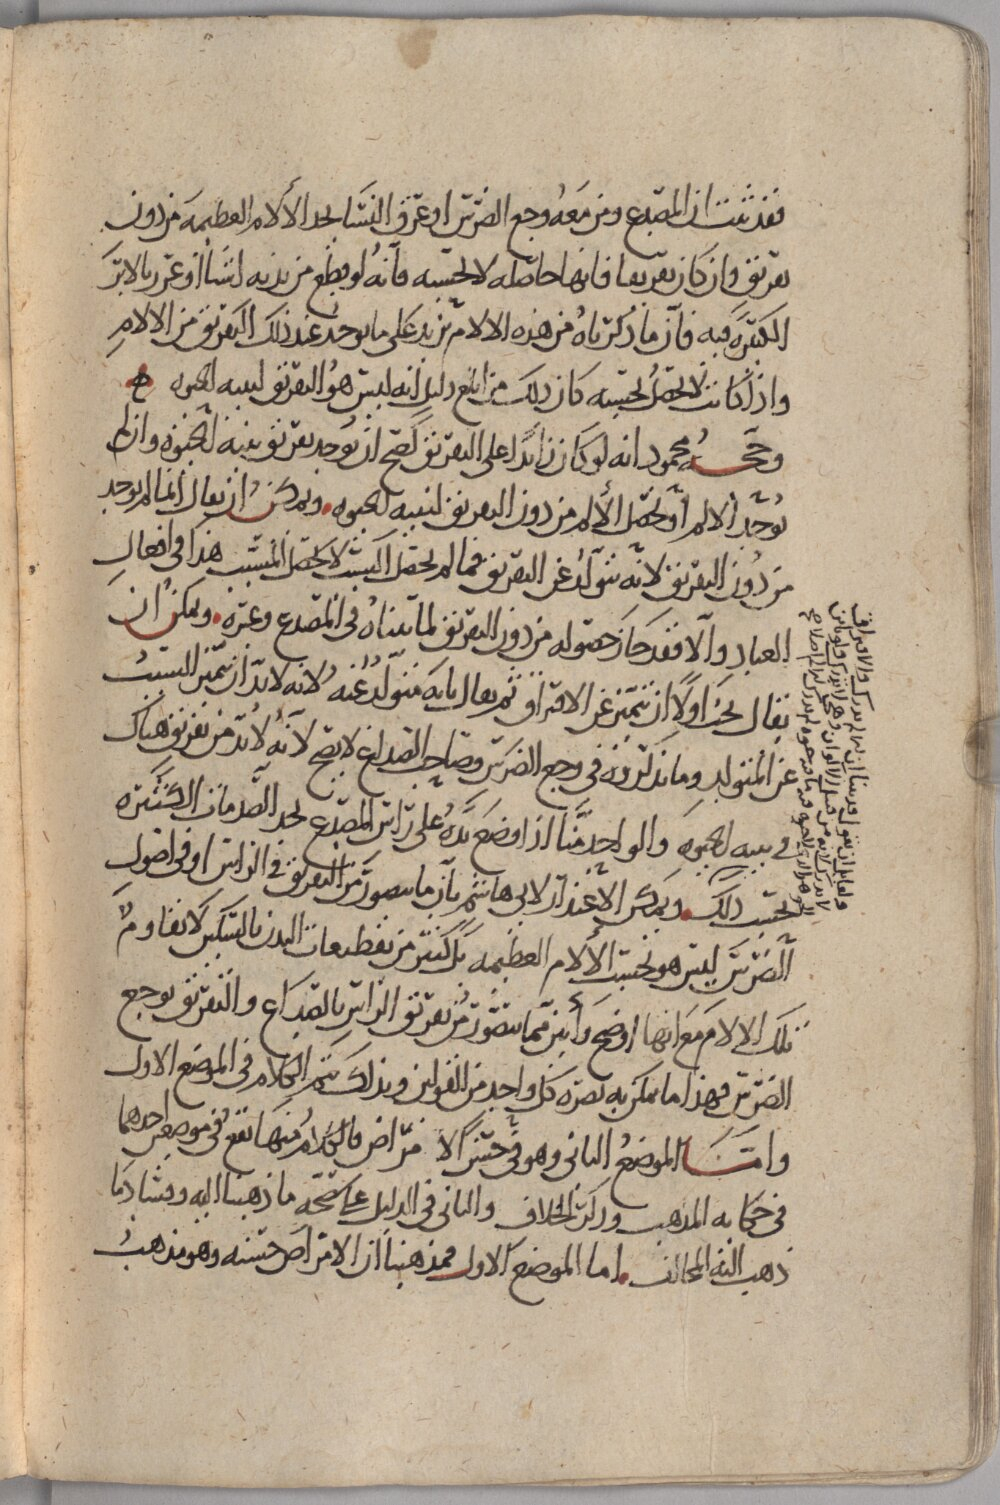 فقد ثبت ان المصدع ومن معه وجع الضرس او عرق النسا يجد الألام العظيمه من دون
تفريق وان كان تفريقا فانها حاصله لا بحسبه فانه لو قطع من بدنه اشيا او غرز بالابر
الكثيره فيه فان ما ذكرناه من هذه الالام تزيد على ما يوجد عند ذلك التفريق من الالام
واذا كانت لا تحصل بحسبه كان ذلك من ابلغ دليل انه ليس هو التفريق لبنيه الحيوه
وحجه محمود انه لو كان زائدا على التفريق لصح ان يوجد تفريق بنية الحيوه وان لم
يوجد الالم او يحصل الألم من دون التفريق لبنيه الحيوه ويمكن ان يقال انما لم يوجد
من دون التفريق لانه متولد عن التفريق فما لم يحصل السبب لا يحصل المسبب هذا في افعال
العباد والا فقد جاز حصوله من دون التفريق لما بيناه في المصدع وغيره ويمكن ان
يقال يجب اولا ان يتميز عن الافتراق ثم يقال بانه متولد عنه لانه لا بد ان يتميز السبب
عن المتولد وما تذكرونه في وجع الضرس وصاحب الصداع لا يصح لانه لا بد من تفريق هناك
في بنيه الحيوه والواحد منا اذا وضع يده على راس المصدع يجد الصدمات الكثيره
بحسب ذلك ويمكن الاعتذار لابي هاشم بان ما يتصور من التفريق في الراس او في اصول
الضرس ليس هو بحسب الألام العظيمه بل كثير من تقطيعات البدن بالسكين لا تقاوم
تلك الالام مع انها اوضح وأبين مما يتصور من تفريق الراس بالصداع والتفريق بوجع
الضرس فهذا ما يمكن به نصره كل واحد من القولين وبذلك يتم الكلام في الموضع الاول
واما الموضع الثاني وهو في حسن الامراض فالكلام منها يقع في موضعين احدهما
في حكايه المذهب وذكر الخلاف والثاني في الدليل على صحه ما ذهبنا اليه وفساد ما
ذهب اليه المخالف اما الموضع الاول فمذهبنا ان الامراض حسنه وهو مذهب